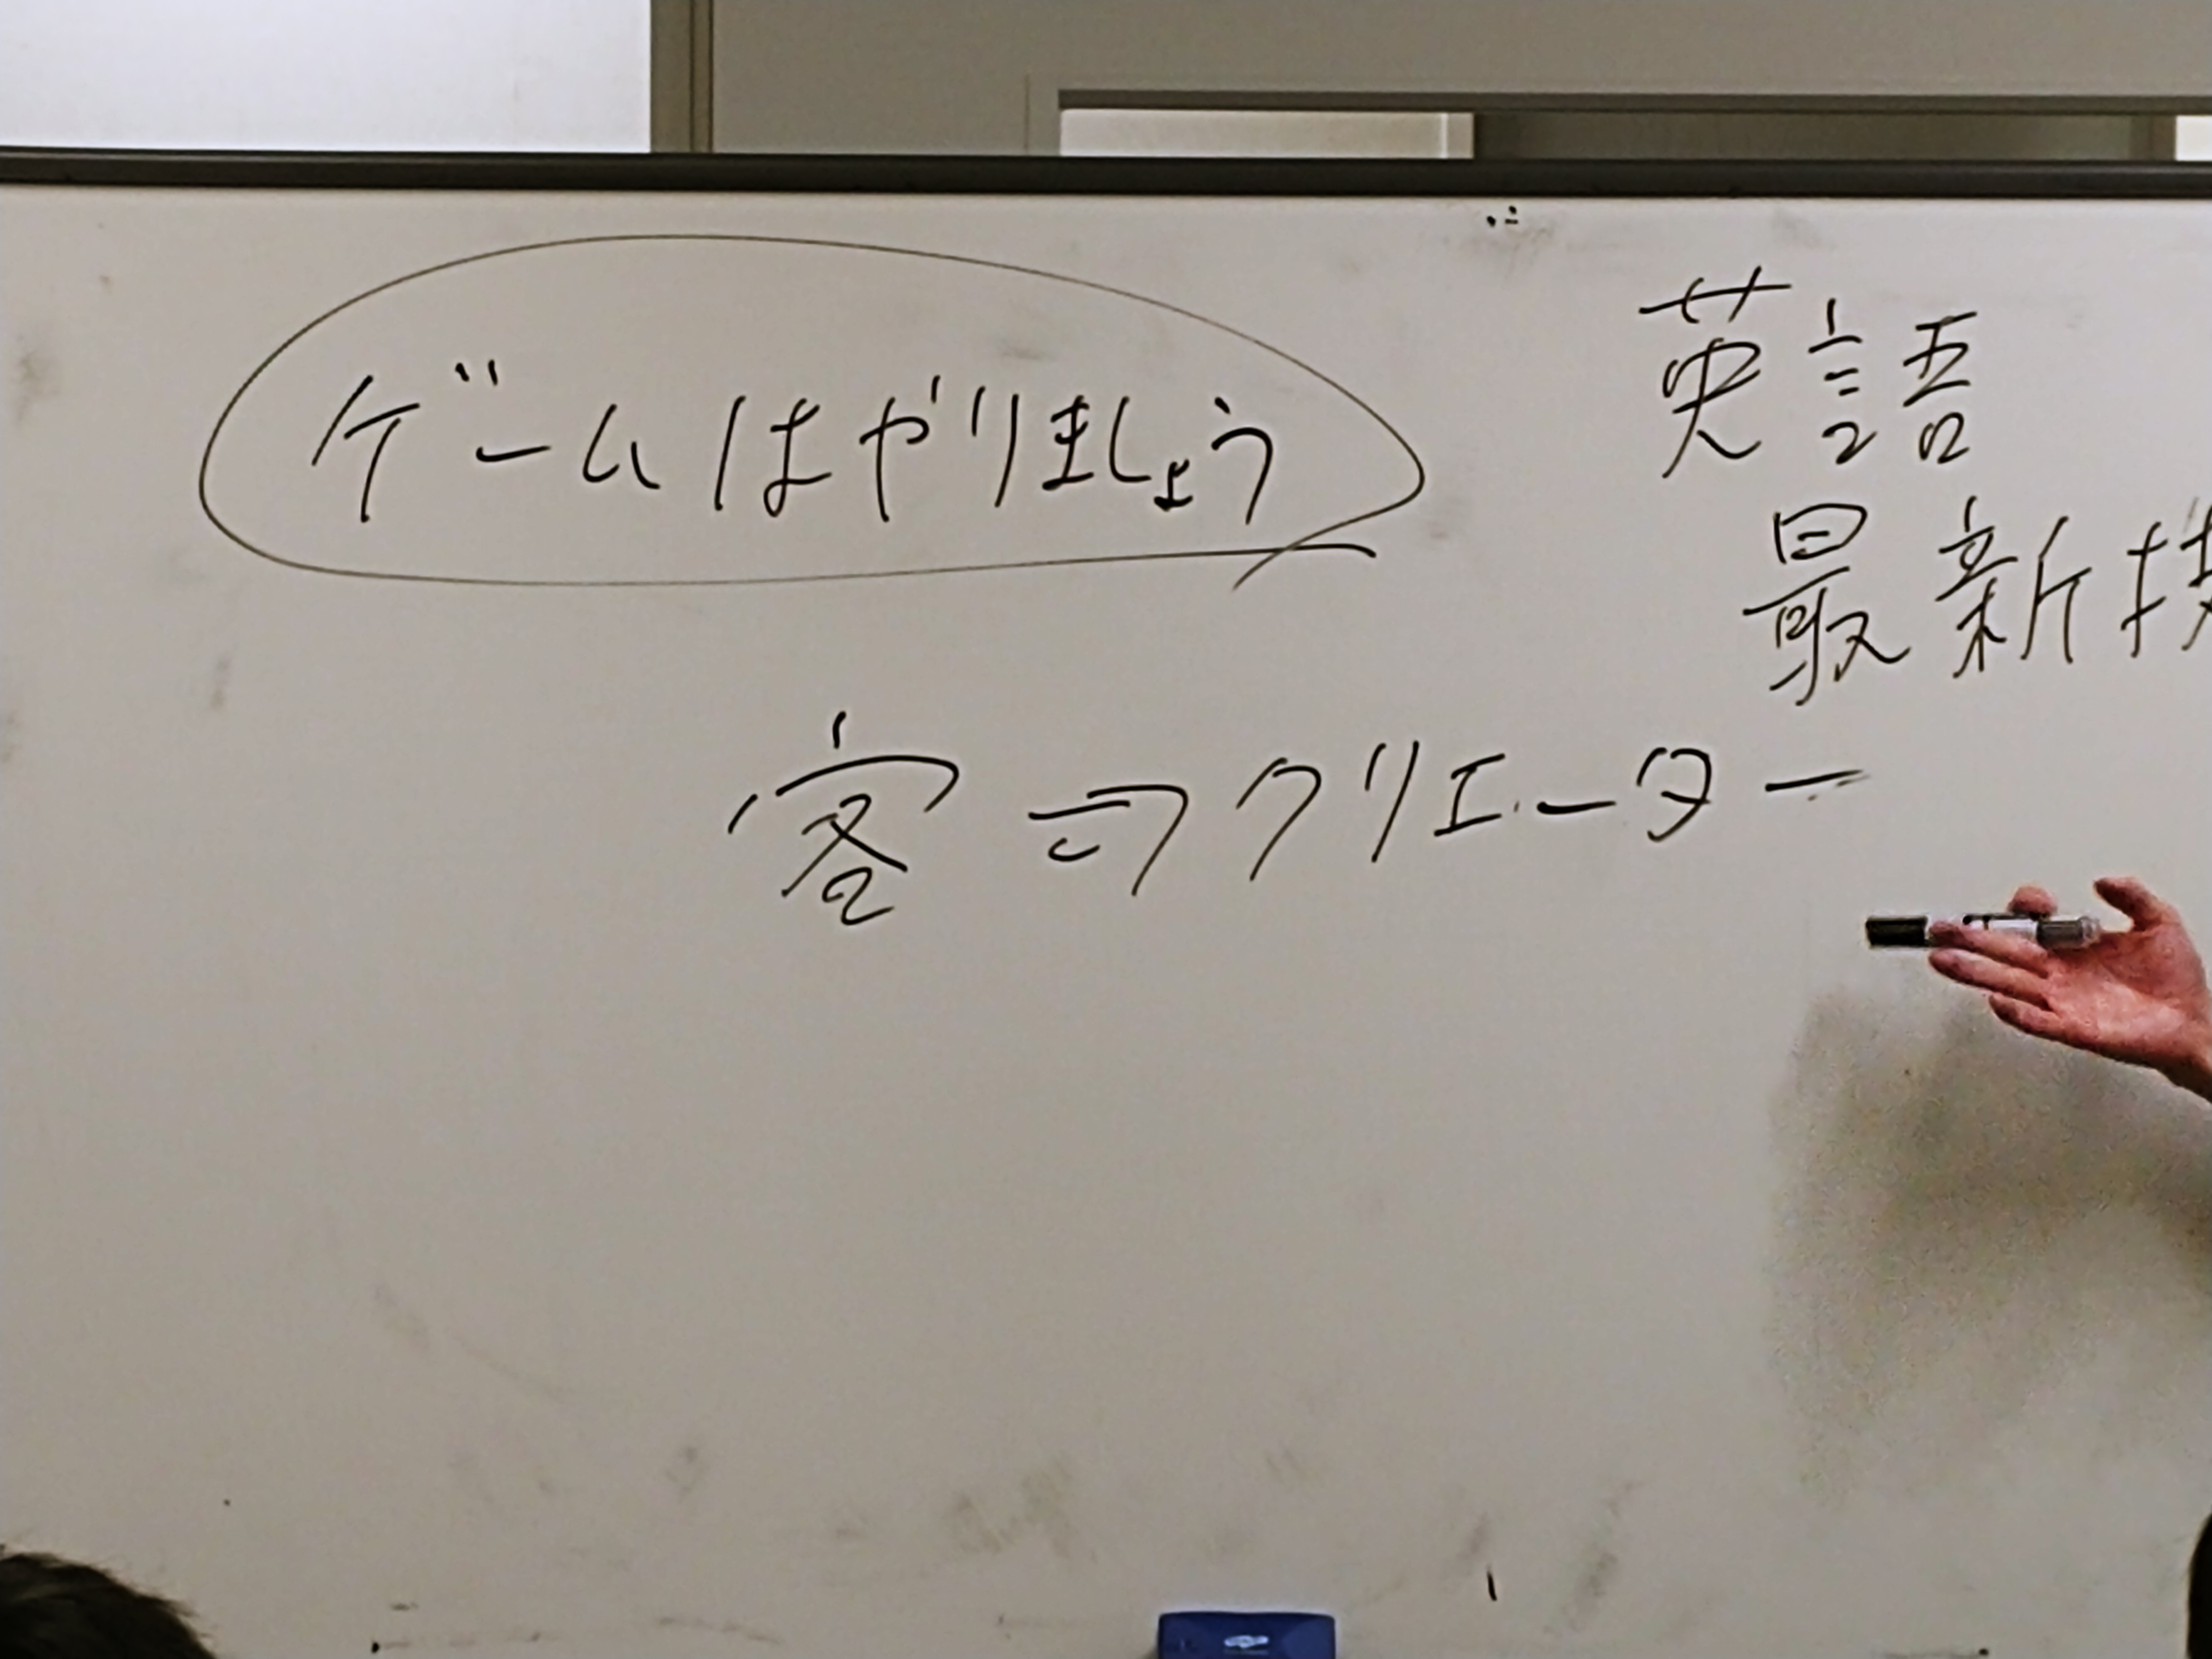 ゲームはやりましょう
英語
最新技
客⇒クリエーター